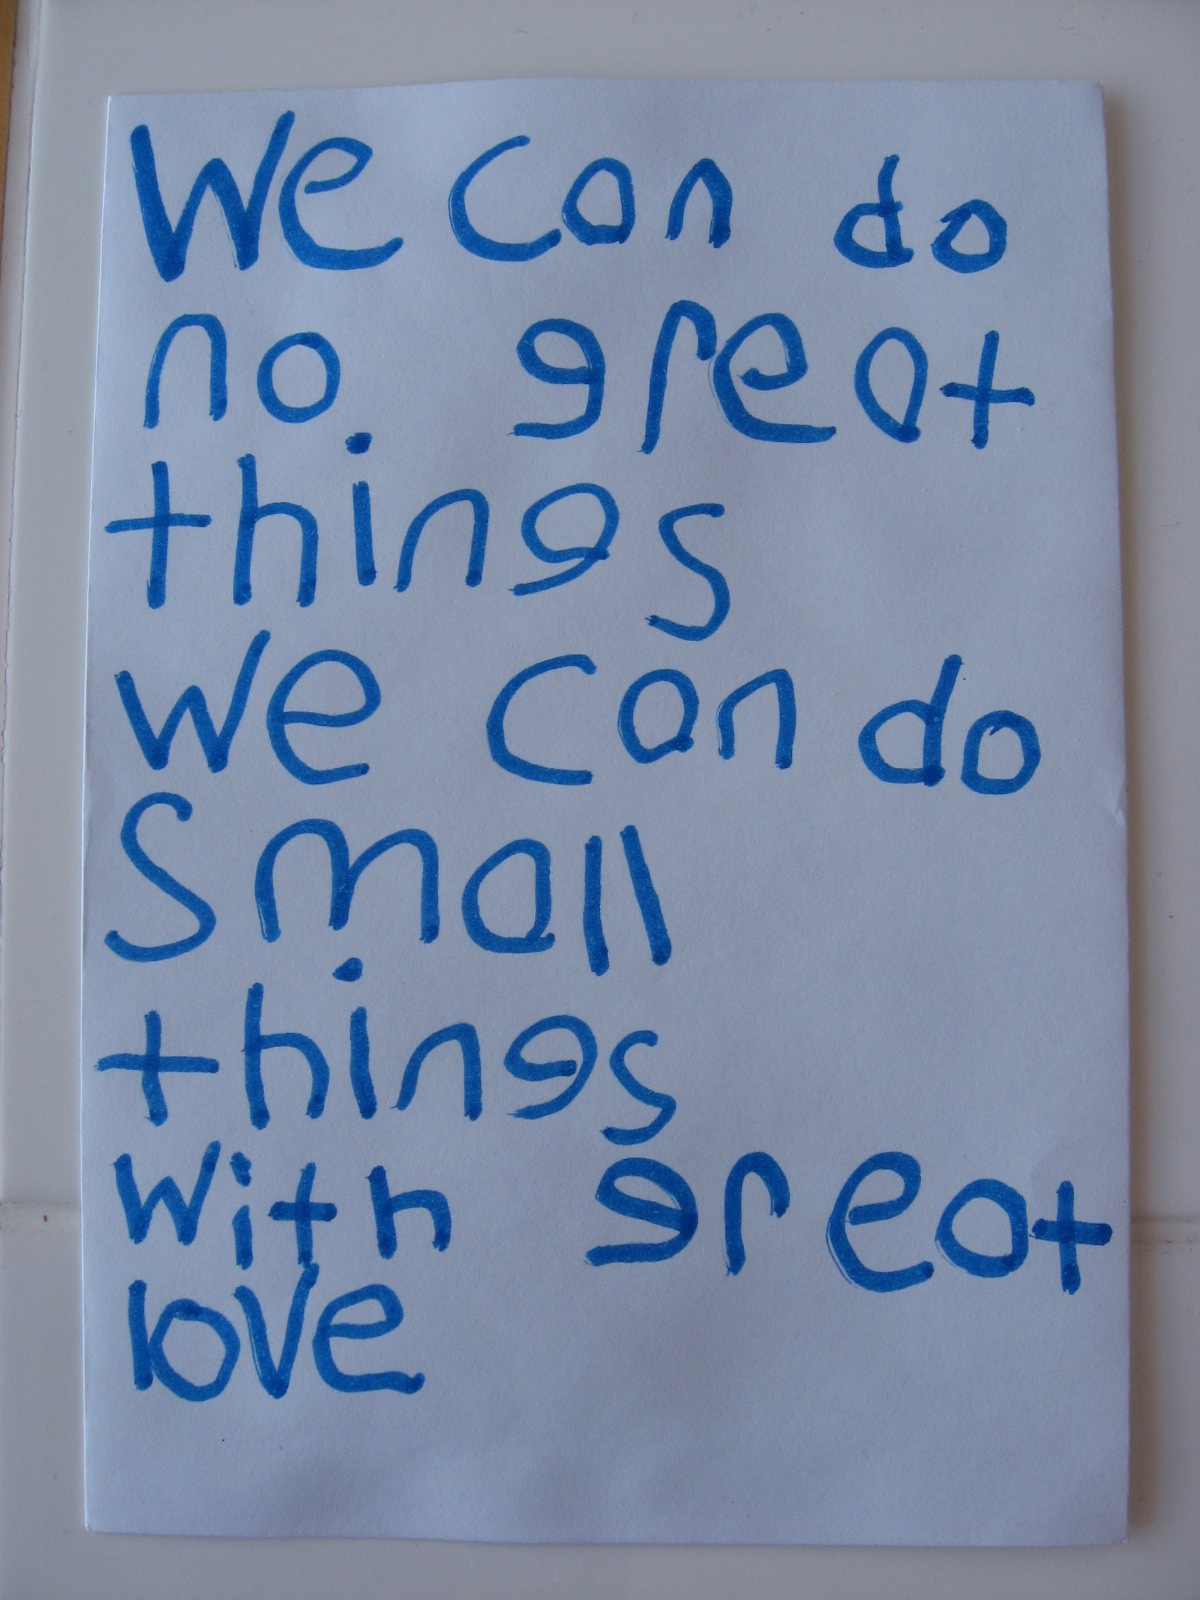 We can do
no great
things
we can do
Small
things
with great
love